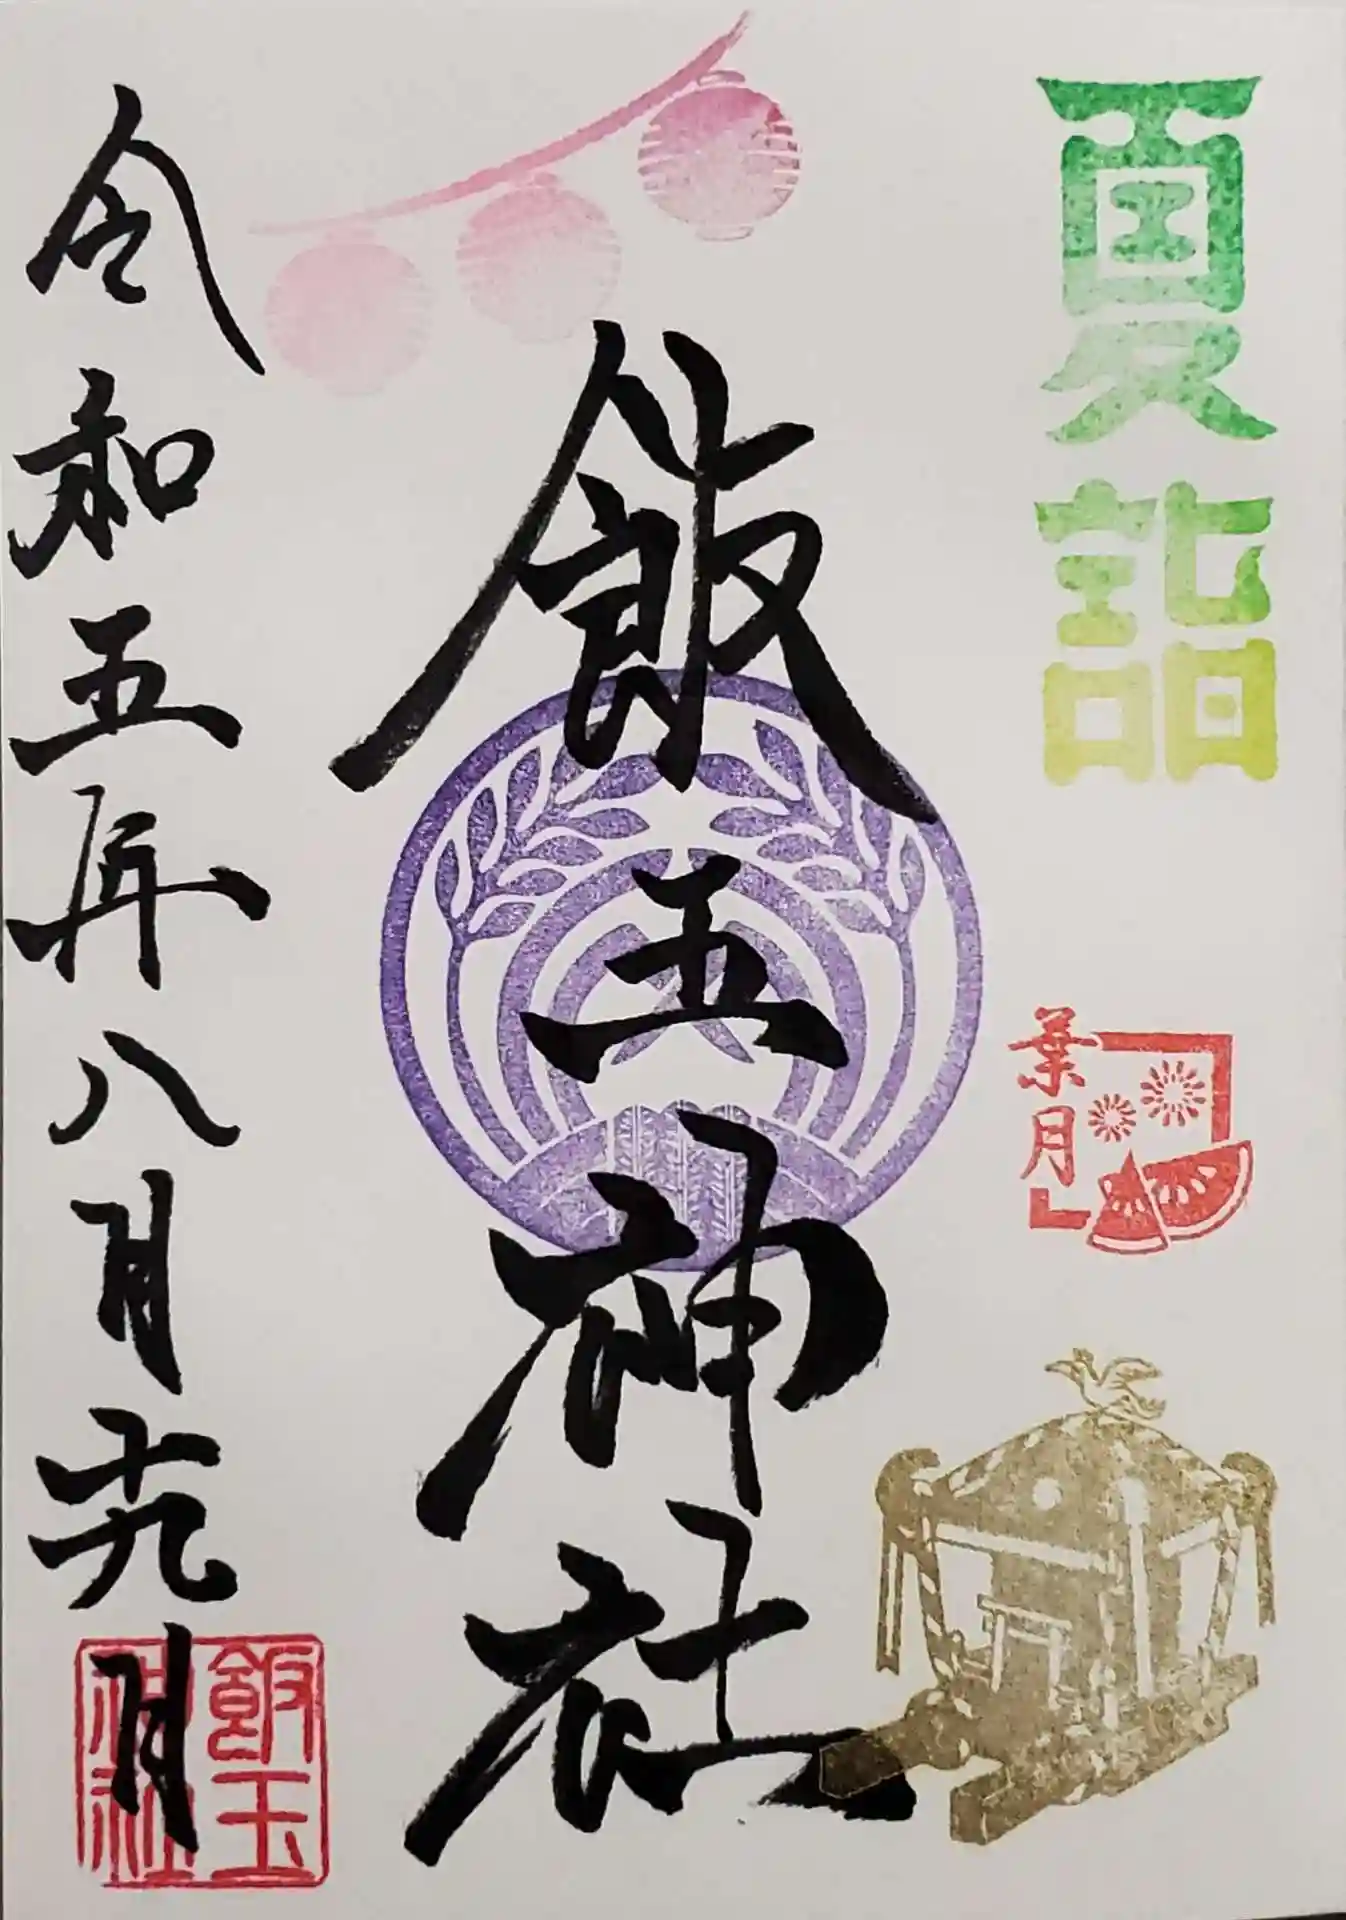 夏詣
葉月
飯玉神社
令和五年八月十九日
飯玉
神社